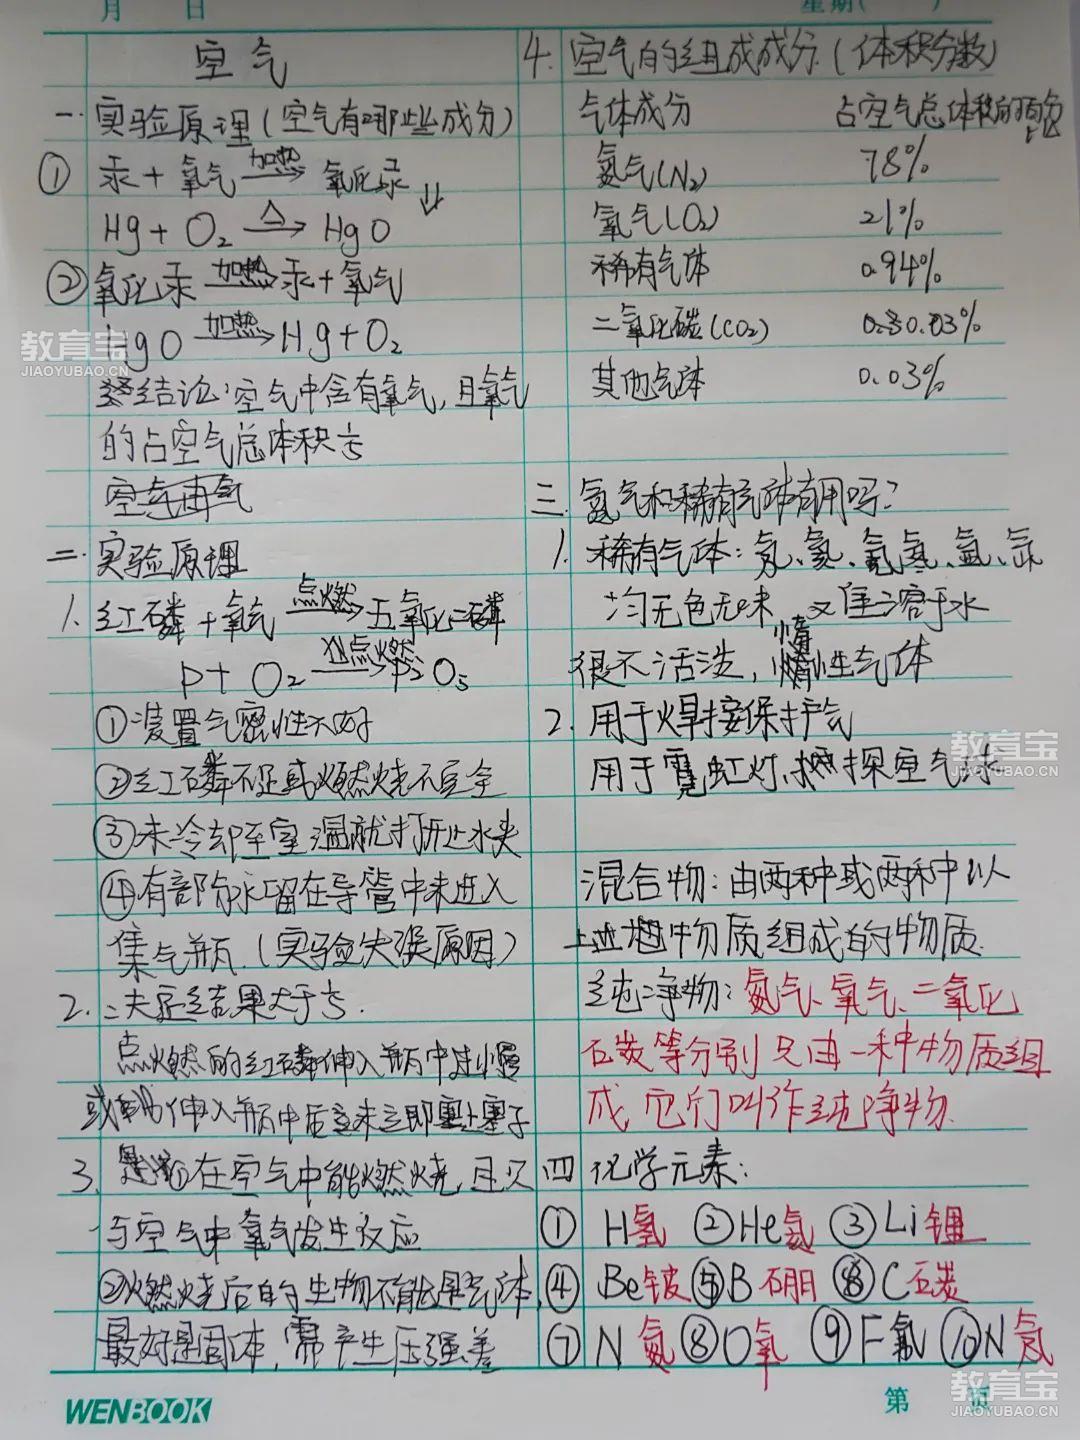 月 日 星期( )
空气
一.实验原理(空气有哪些成分)
① 汞+氧气 加热→ 氧化汞
Hg+O₂ △→ HgO
② 氧化汞 加热→ 汞+氧气
HgO 加热→ Hg+O₂
结论:空气中含有氧气,且氧气
的占空气总体积⅕
二.实验原理
1. 红磷+氧气 点燃→ 五氧化二磷
P+O₂ 点燃→ P₂O₅
①装置气密性不好
②红磷不足或燃烧不完全
③未冷却至室温就打开止水夹
④有部分水留在导管中未进入
集气瓶.(实验失误原因)
2. 测定结果大于⅕.
点燃的红磷伸入瓶中过慢
或伸入瓶中后未立即塞上塞子
3. ①在空气中能燃烧,且只
与空气中氧气发生反应
②燃烧后的生物不能是气体,
最好是固体,需产生压强差
4. 空气的组成成分.(体积分数)
气体成分 占空气总体积的百分
氮气(N₂) 78%
氧气(O₂) 21%
稀有气体 0.94%
二氧化碳(CO₂) 0.03%
其他气体 0.03%
三. 氮气和稀有气体有用吗?
1. 稀有气体:氦、氖、氩、氪、氙、氡
均无色无味 又难溶于水
很不活泼,惰性气体
2. 用于焊接保护气
用于霓虹灯、探空气球
混合物:由两种或两种中以
上物质组成的物质.
纯净物:氮气、氧气、二氧化
碳等分别只由一种物质组
成,它们叫作纯净物.
四 化学元素:
① H氢 ②He氦 ③Li锂
④ Be铍 ⑤B硼 ⑥C碳
⑦ N氮 ⑧O氧 ⑨F氟 ⑩N氖
WENBOOK 第 页
教育宝
JIAOYUBAO.CN
教育宝
JIAOYUBAO.CN
教育宝
JIAOYUBAO.CN